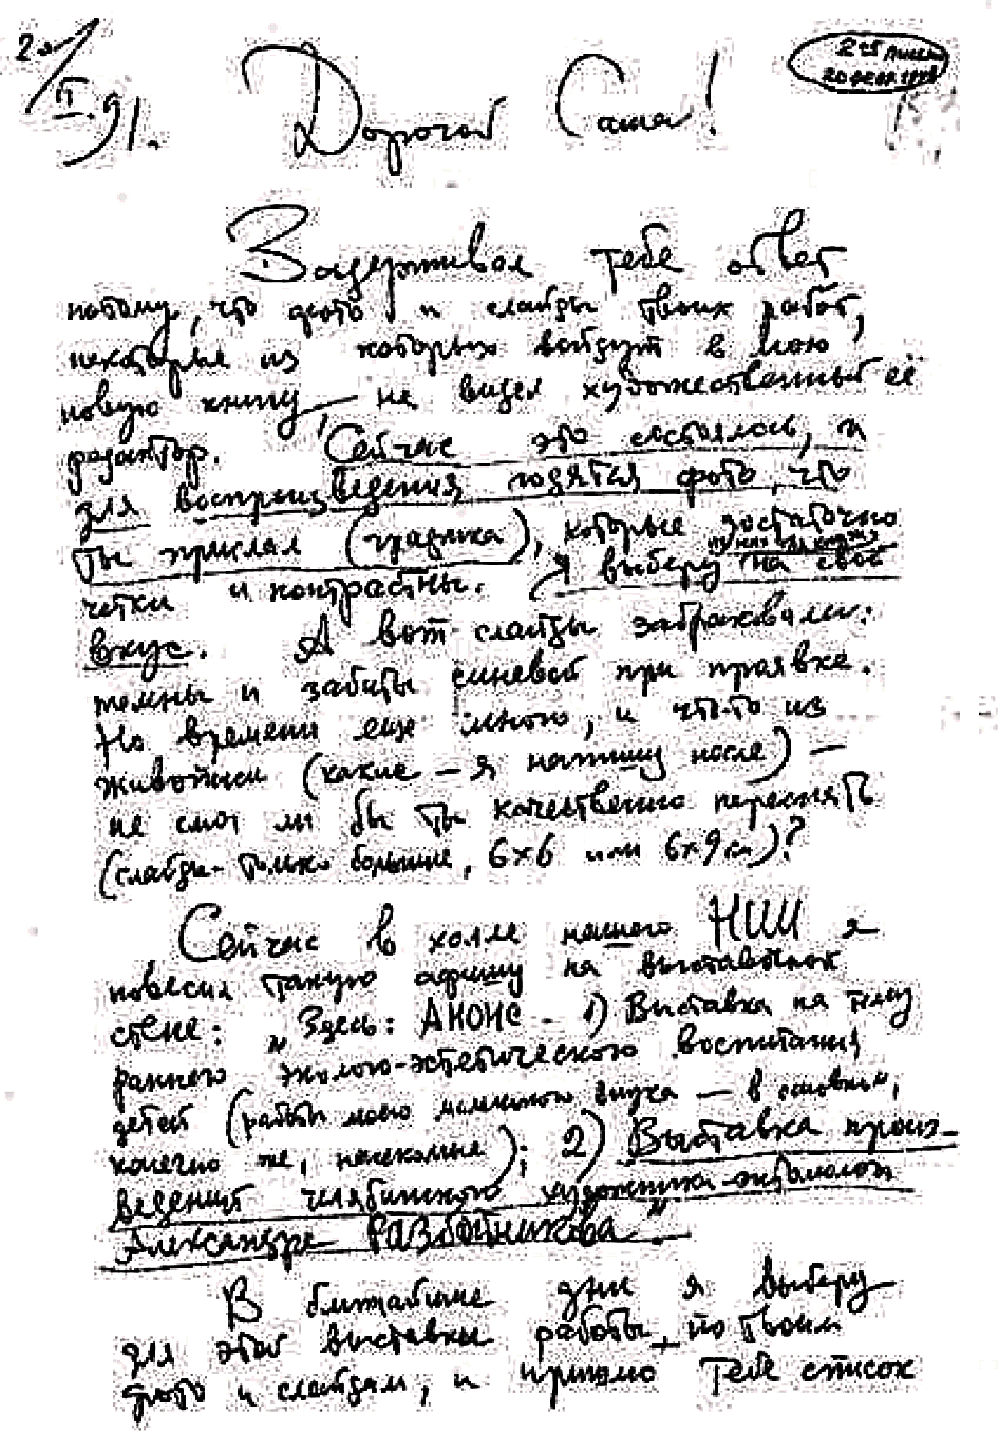 20/II.91.
Дорогой Саша!
Задерживал тебе ответ
потому, что фото и слайды твоих работ,
некоторые из которых войдут в мою
новую книгу, — не видел художественный её
редактор. Сейчас это состоялось, и
для воспроизведения годятся фото, что
ты прислал (графика), которые достаточно
четки и контрастны. Я выберу на свой
вкус. А вот слайды забраковали:
темны и забиты синевой при проявке.
Но времени еще много, и что-то из
живописи (какие — я напишу после) —
не смог ли бы ты качественно переснять
(слайды – только большие, 6х6 или 6х9 см)?
Сейчас в холле нашего НИИ я
повесил такую афишу на выставочной
стене: „Здесь: АНОНС – 1) Выставка на тему
раннего эколого-эстетического воспитания
детей (работы моего маленького внука — в основном,
конечно же, насекомые); 2) Выставка произ-
ведений челябинского художника-энтомолога
Александра РАЗБОЙНИКОВА".
В ближайшие дни я выберу
для этой выставки работы, по твоим
фото и слайдам, и пришлю тебе список